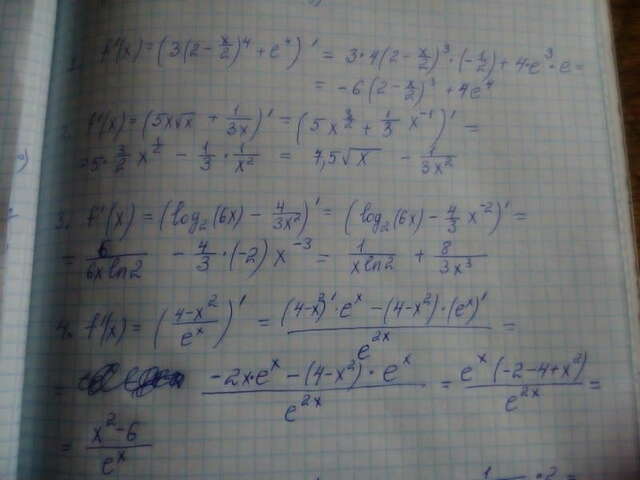 1. f'(x) = (3(2 - x/2)^4 + e^4)' = 3·4(2 - x/2)^3 · (-1/2) + 4·e^3·e =
= -6(2 - x/2)^3 + 4e^4
2. f'(x) = (5x√x + 1/3x)' = (5x^3/2 + 1/3 x^-1)' =
= 5·3/2 x^1/2 - 1/3 · 1/x^2 = 7,5√x - 1/3x^2
3. f'(x) = (log₂(6x) - 4/3x^2)' = (log₂(6x) - 4/3 x^-2)' =
= 6/6x ln2 - 4/3 · (-2) x^-3 = 1/x ln2 + 8/3x^3
4. f'(x) = (4-x^2/e^x)' = (4-x^2)'·e^x - (4-x^2)·(e^x)'/e^2x =
= -2x·e^x - (4-x^2)·e^x/e^2x = e^x(-2-4+x^2)/e^2x =
= x^2-6/e^x